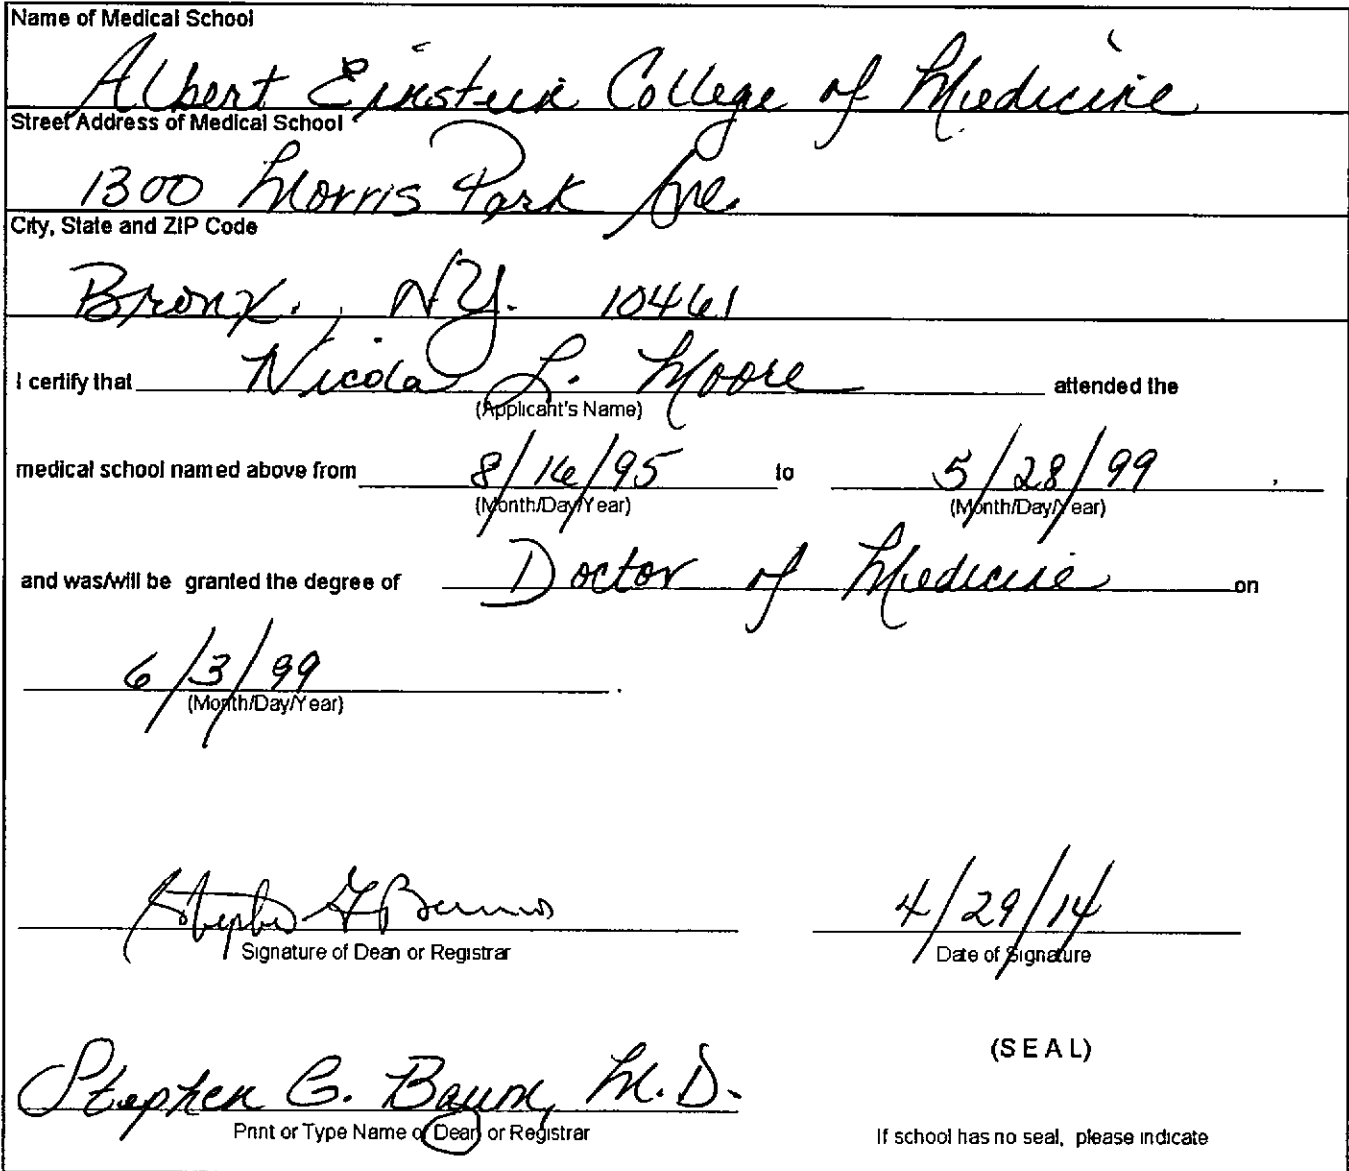 Name of Medical School
Albert Einstein College of Medicine
Street Address of Medical School
1300 Morris Park Ave.
City, State and ZIP Code
Bronx, NY. 10461
I certify that Nicola L. Moore attended the
(Applicant's Name)
medical school named above from 8/16/95 to 5/28/99 .
(Month/Day/Year) (Month/Day/Year)
and was/will be granted the degree of Doctor of Medicine on
6/3/99 .
(Month/Day/Year)
4/29/14
Signature of Dean or Registrar Date of Signature
(SEAL)
Stephen G. Baum, M.D.
Print or Type Name of Dean or Registrar If school has no seal, please indicate